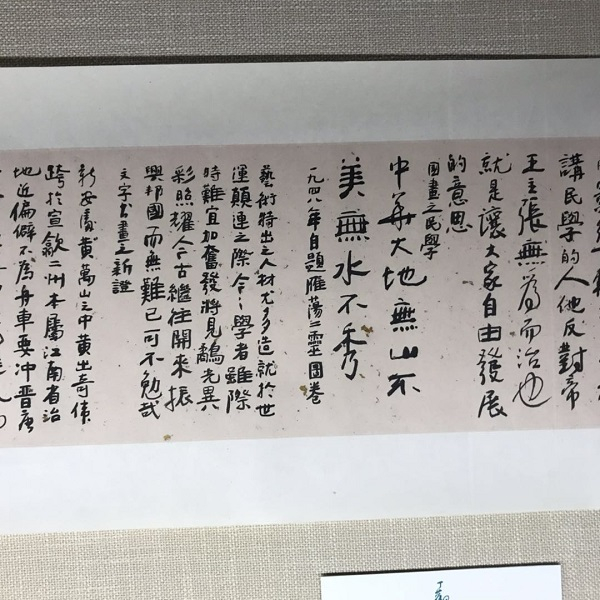 講民學的人他反對帝
王主張無為而治也
就是讓大家自由發展
的意思
國畫之民學
中華大地無山不
美無水不秀
一九四八年自題雁蕩二靈圖卷
藝術特出之人材尤多造就於世
運顛連之際今之學者雖際
時難宜加奮發將見光異
彩照耀今古繼往開來振
興邦國而無難已可不勉哉
文字書畫之新證
新安處黃萬山之中黃山奇偉
跨於宣歙二州本屬江南省治
地近偏僻不為舟車要沖晉唐